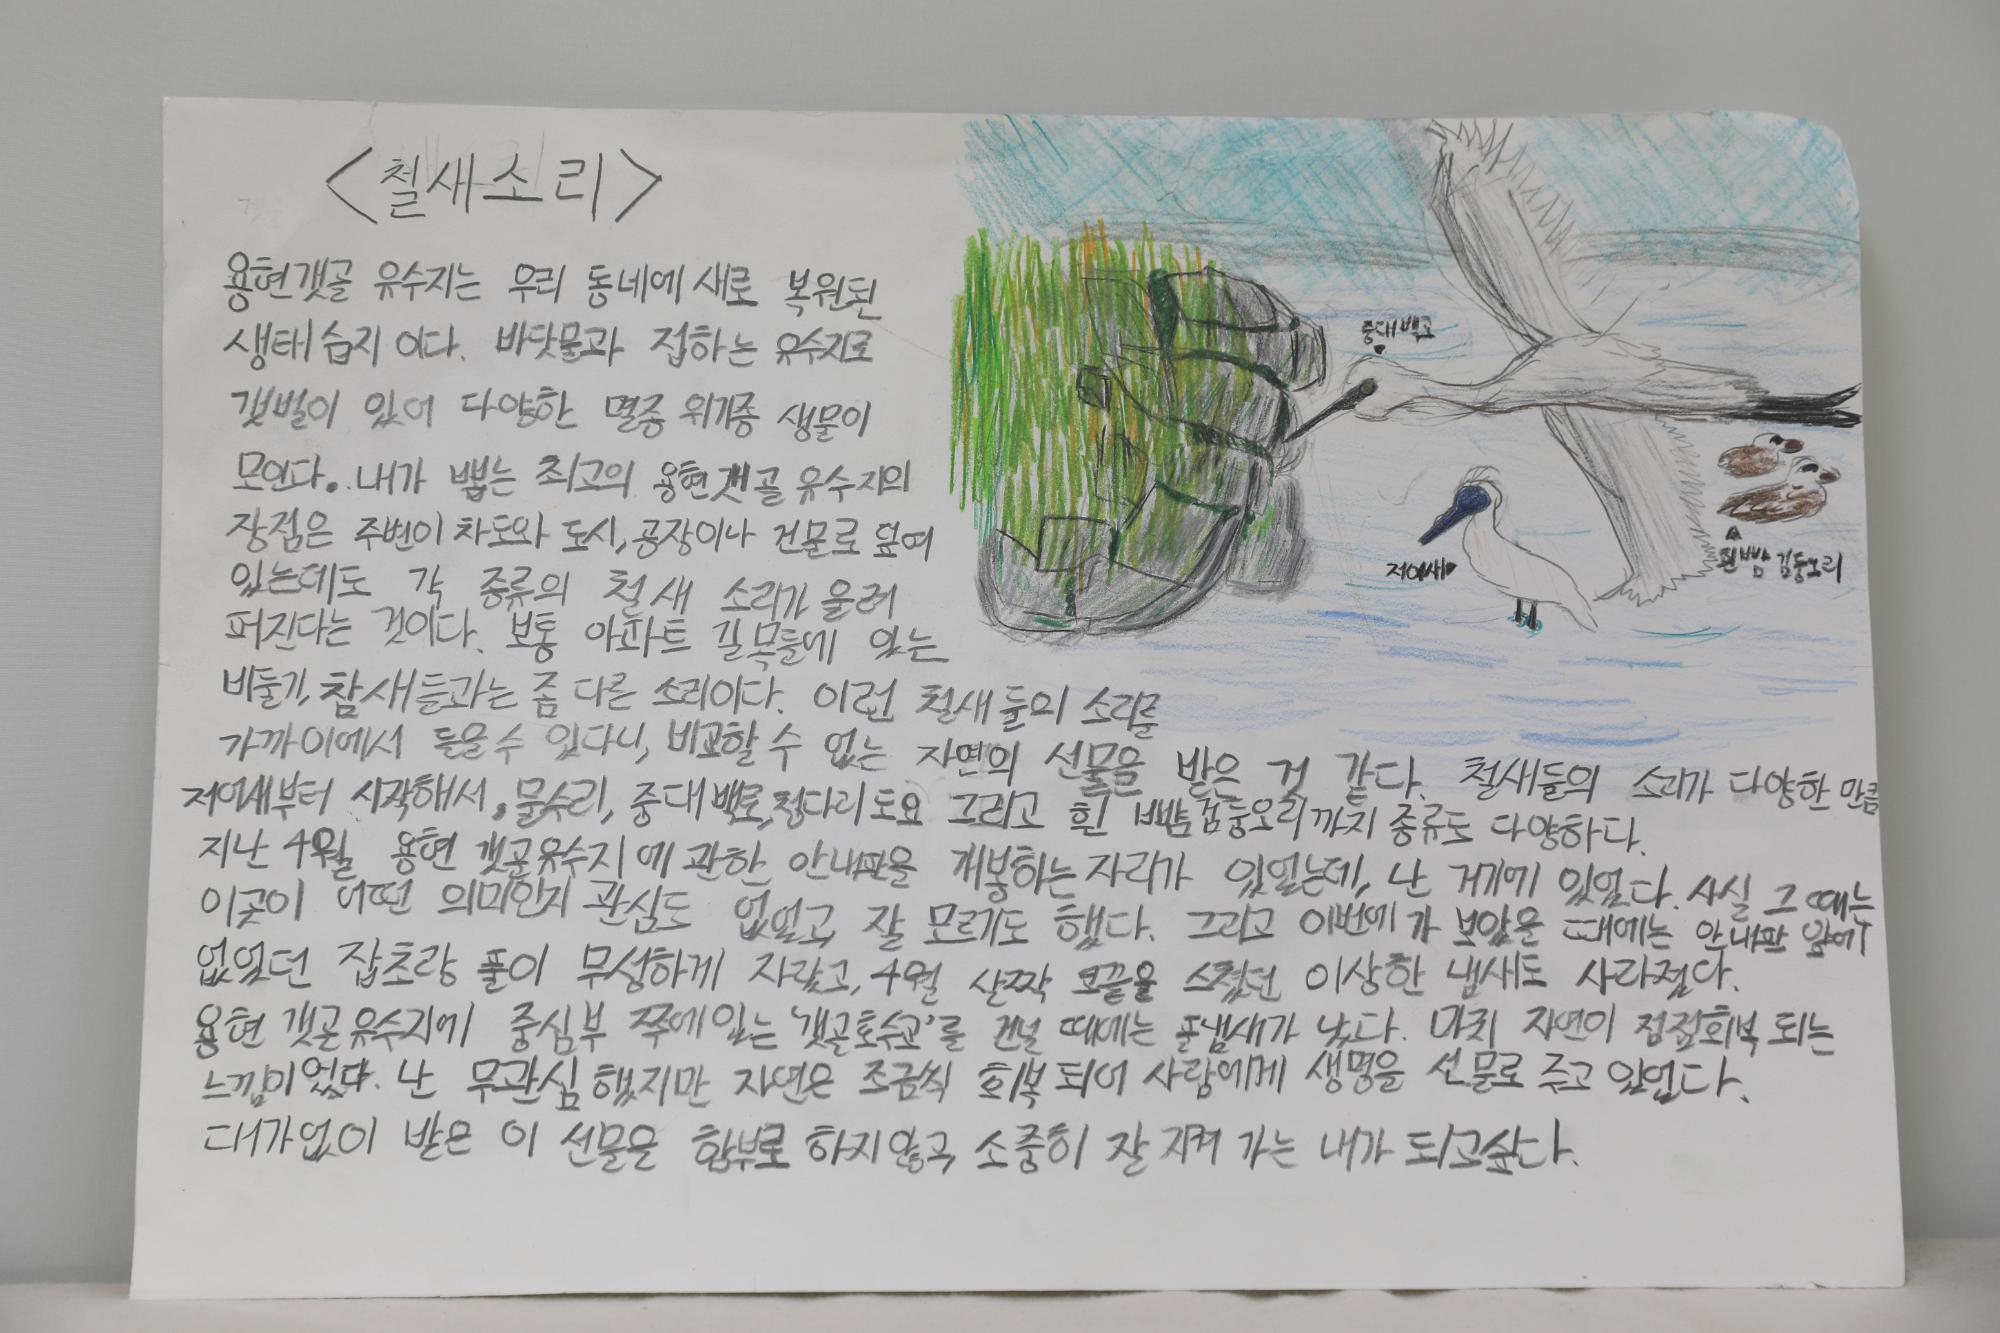 <철새소리>
용현갯골 유수지는 우리 동네에 새로 복원된
생태 습지 이다. 바닷물과 접하는 유수지로
갯벌이 있어 다양한 멸종 위기종 생물이
모인다. 내가 뽑는 최고의 용현갯골 유수지의
장점은 주변이 차도와 도시, 공장이나 건물로 덮여
있는데도 각 종류의 철새 소리가 울려
퍼진다는 것이다. 보통 아파트 길목들에 있는
비둘기, 참새들과는 좀 다른 소리이다. 이런 철새들의 소리를
가까이에서 들을 수 있다니, 비교할 수 없는 자연의 선물을 받은 것 같다. 철새들의 소리가 다양한 만큼
저어새부터 시작해서, 물수리, 중대백로, 청다리도요 그리고 흰 뺨검둥오리까지 종류도 다양하다.
지난 4월 용현 갯골유수지에 관한 안내판을 개봉하는 자리가 있었는데, 난 거기에 있었다. 사실 그 때는
이곳이 어떤 의미인지 관심도 없었고, 잘 모르기도 했다. 그리고 이번에 가 보았을 때에는 안내판 앞에
없었던 잡초랑 풀이 무성하게 자랐고, 4월 살짝 코끝을 스쳤던 이상한 냄새도 사라졌다.
용현 갯골유수지에 중심부 쪽에 있는 '갯골호수교'를 건널 때에는 풀냄새가 났다. 마치 자연이 점점회복 되는
느낌이었다. 난 무관심 했지만 자연은 조금씩 회복 되어 사람에게 생명을 선물로 주고 있었다.
대가없이 받은 이 선물을 함부로 하지않고, 소중히 잘 지켜 가는 내가 되고싶다.
중대백로
저어새
흰뺨 검둥오리